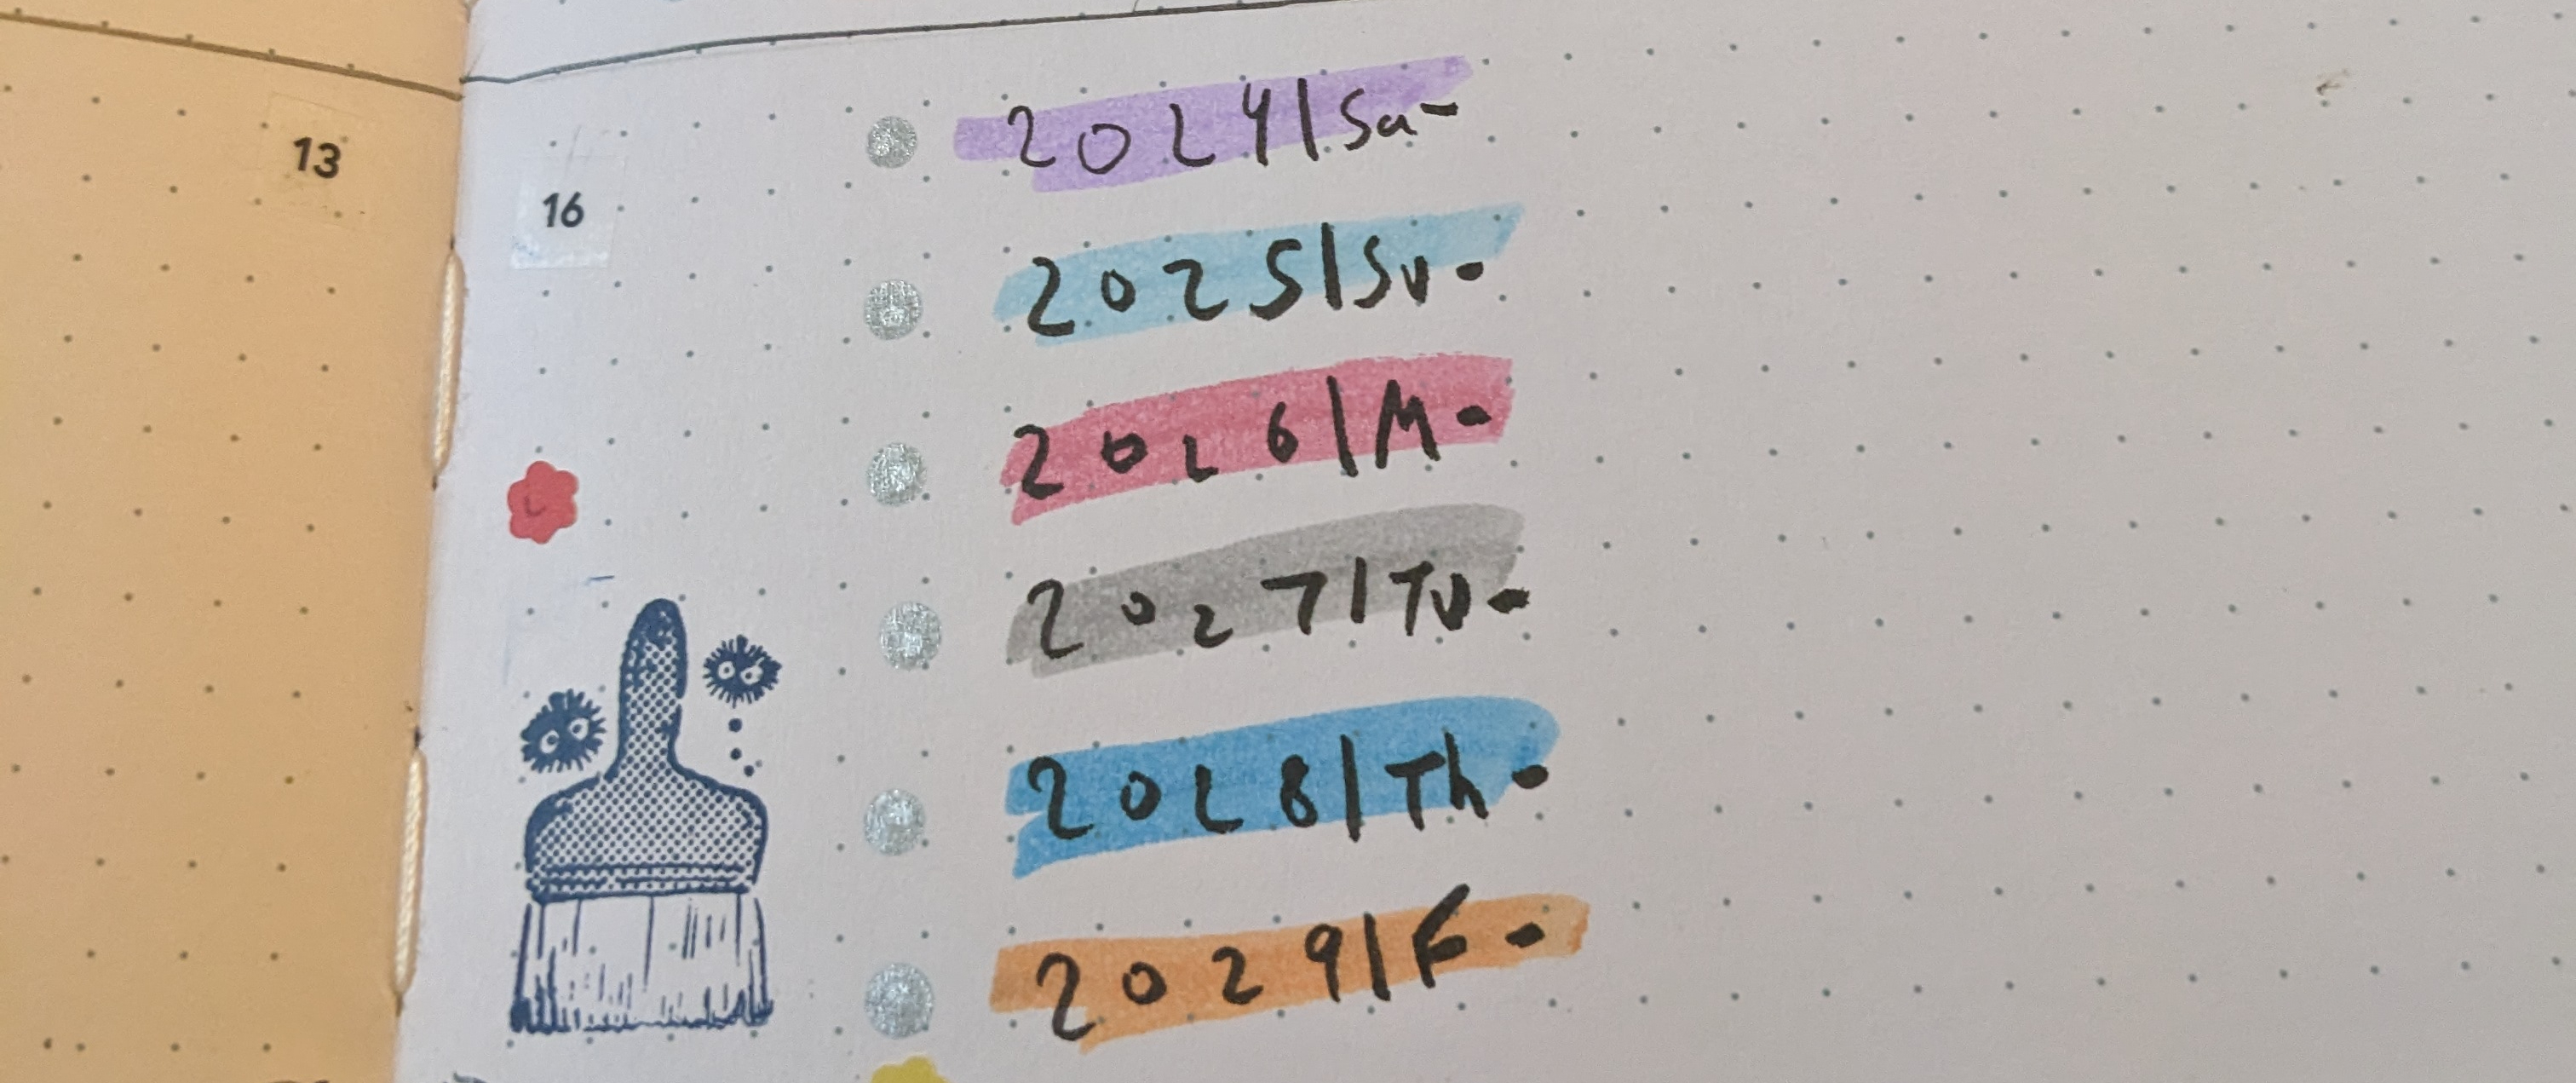 13
16
2024|Sa-
2025|Su-
2026|M-
2027|Tu-
2028|Th-
2029|F-